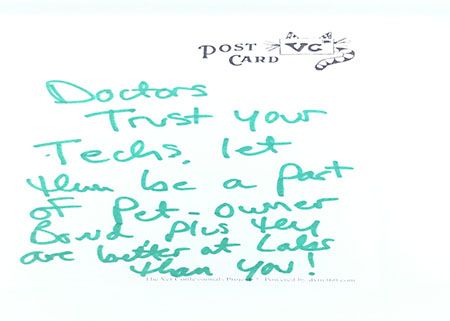 POST CARD
VC
Doctors
Trust your
Techs, let
them be a part
of Pet-owner
Bond plus they
are better at Labs
than you!
The Vet Confessionals Project
Powered by dvm360.com